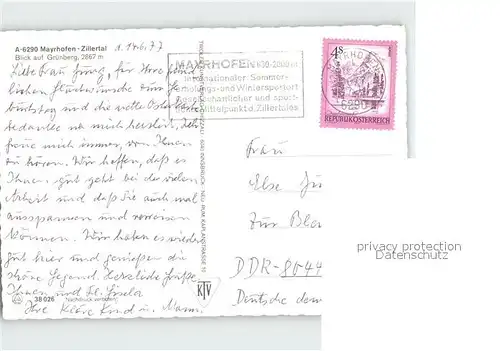 A-6290 Mayrhofen - Zillertal
d. 14.6.77
Blick auf Grünberg, 2867 m
Liebe Frau Jung, für Ihre freund
lichen Glückwünsche zum Ge
burtstag und die nette Osterkarte
bedanke ich mich herzlich. Ich
freue mich immer, von Ihnen
zu hören. Wir hoffen, daß es
Ihnen gut geht bei der vielen
Arbeit und daß Sie auch mal
ausspannen und verreisen
können. Wir haben es wieder
gut hier und genießen die
schöne Gegend. Herzliche Grüße
Ihnen und Frl. Gisela
Ihre Kläre Kind u. Mann.
38 026 Nachdruck verboten!
MAYRHOFEN 630-2000 m
Internationaler Sommer-
Erholungs- und Wintersportort
Gesellschaftlicher und sport-
Mittelpunkt d. Zillertales
MAYRHOFEN
6290
4 S
REPUBLIK ÖSTERREICH
6010 INNSBRUCK
KTV
Frau
Else Ju
Zur Bla
DDR-8044
Deutsche dem
privacy protection
Datenschutz